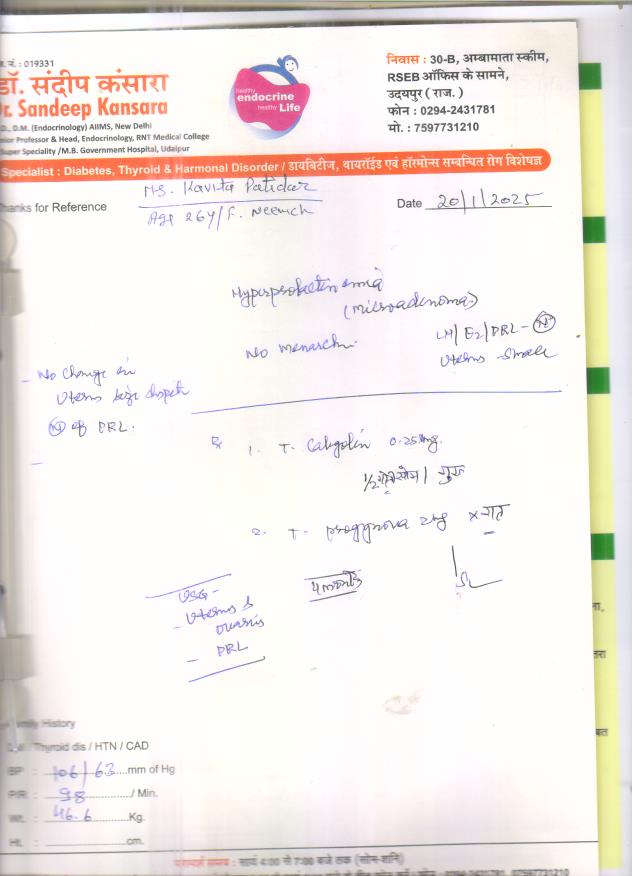 नं. : 019331
डॉ. संदीप कंसारा
Dr. Sandeep Kansara
D.M. (Endocrinology) AIIMS, New Delhi
Professor & Head, Endocrinology, RNT Medical College
Super Speciality /M.B. Government Hospital, Udaipur
healthy
endocrine
healthy Life
निवास : 30-B, अम्बामाता स्कीम,
RSEB ऑफिस के सामने,
उदयपुर ( राज. )
फोन : 0294-2431781
मो. : 7597731210
Specialist : Diabetes, Thyroid & Harmonal Disorder / डायबिटीज, थायरॉईड एवं हॉरमोन्स सम्बन्धित रोग विशेषज्ञ
Thanks for Reference
Ms. Kavita Patidar
Age 26y/F. Neemuch
Date 20/1/2025
(Microadenoma)
No menarche
LH/E2/PRL- N
Uterus small
- No change in
Uterus size
N of PRL.
-
Rx
1. T. 0.25mg.
1/2
2. T. 2mg x रात
4 months
USG -
- Uterus &
ovaries
- PRL
Family History
Thyroid dis / HTN / CAD
BP : 106/63 mm of Hg
P/R : 98 / Min.
Wt. : 46.6 Kg.
Ht. : cm.
परामर्श समय : सायं 4:00 से 7:00 बजे तक (सोम-शनि)